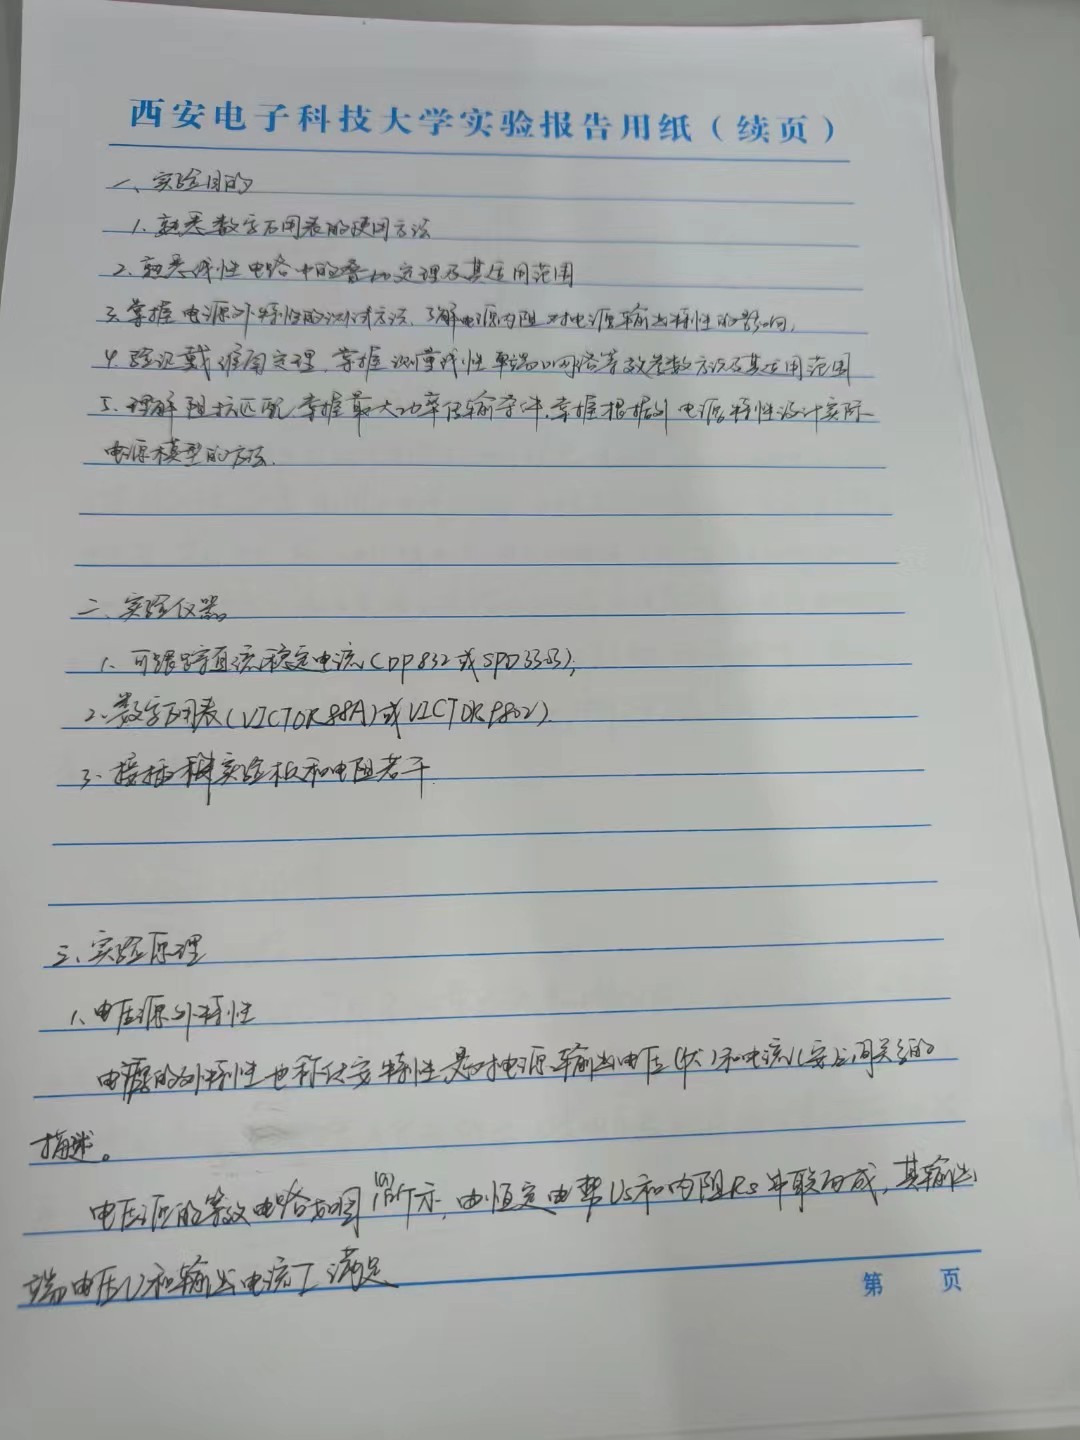 西安电子科技大学实验报告用纸（续页）
一、实验目的
1. 熟悉数字万用表的使用方法
2. 熟悉线性电路中的叠加定理及其适用范围
3. 掌握电源外特性的测试方法，了解电源内阻对电源输出特性的影响，
4. 验证戴维南定理，掌握测量线性单端口网络等效参数方法及其适用范围
5. 理解阻抗匹配，掌握最大功率传输条件，掌握根据外电源特性设计实际
电源模型的方法.
二、实验仪器。
1、可跟踪直流稳定电流（DP832或SPD3303），
2、数字万用表（VICTOR88A）或VICTOR9802）.
3、接插件实验板和电阻若干.
三、实验原理
1、电压源外特性
电源的外特性也称伏安特性是对电源输出电压（伏）和电流（安）之间关系的
描述。
电压源的等效电路如图(a)所示，由恒定电势Us和内阻Rs串联而成，其输出
端电压U和输出电流I满足
第 页